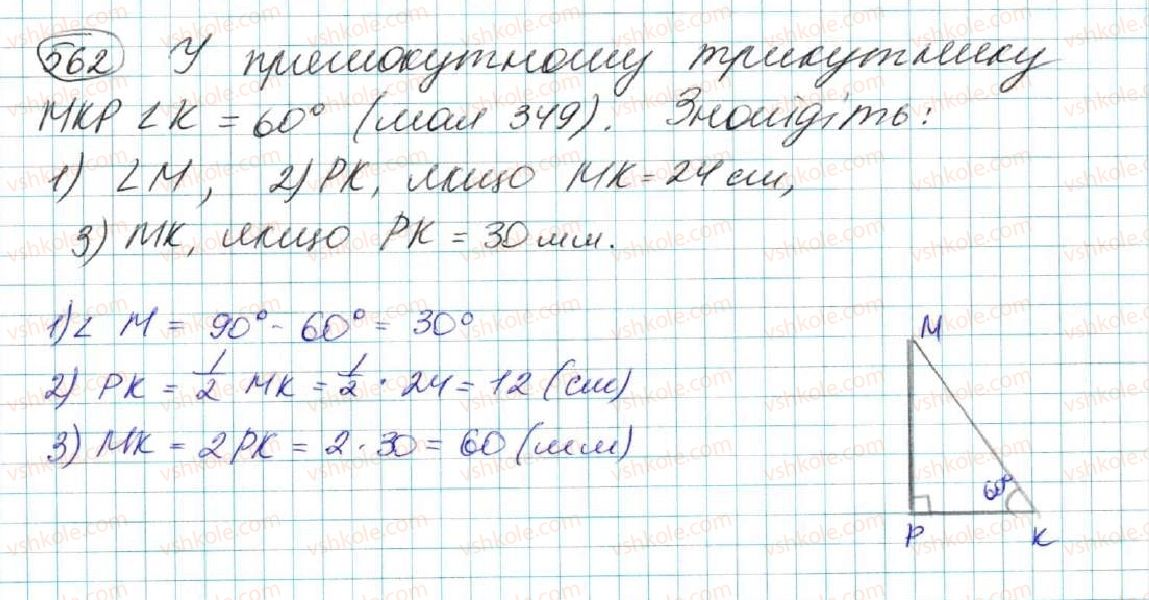 562 У прямокутному трикутнику
МКР ∠К = 60° (мал 349). Знайдіть:
1) ∠М, 2) РК, якщо МК = 24 см,
3) МК, якщо РК = 30 мм.
1) ∠ М = 90° - 60° = 30°
2) РК = 1/2 МК = 1/2 · 24 = 12 (см)
3) МК = 2РК = 2 · 30 = 60 (мм)
М
60°
Р К
vshkole.com